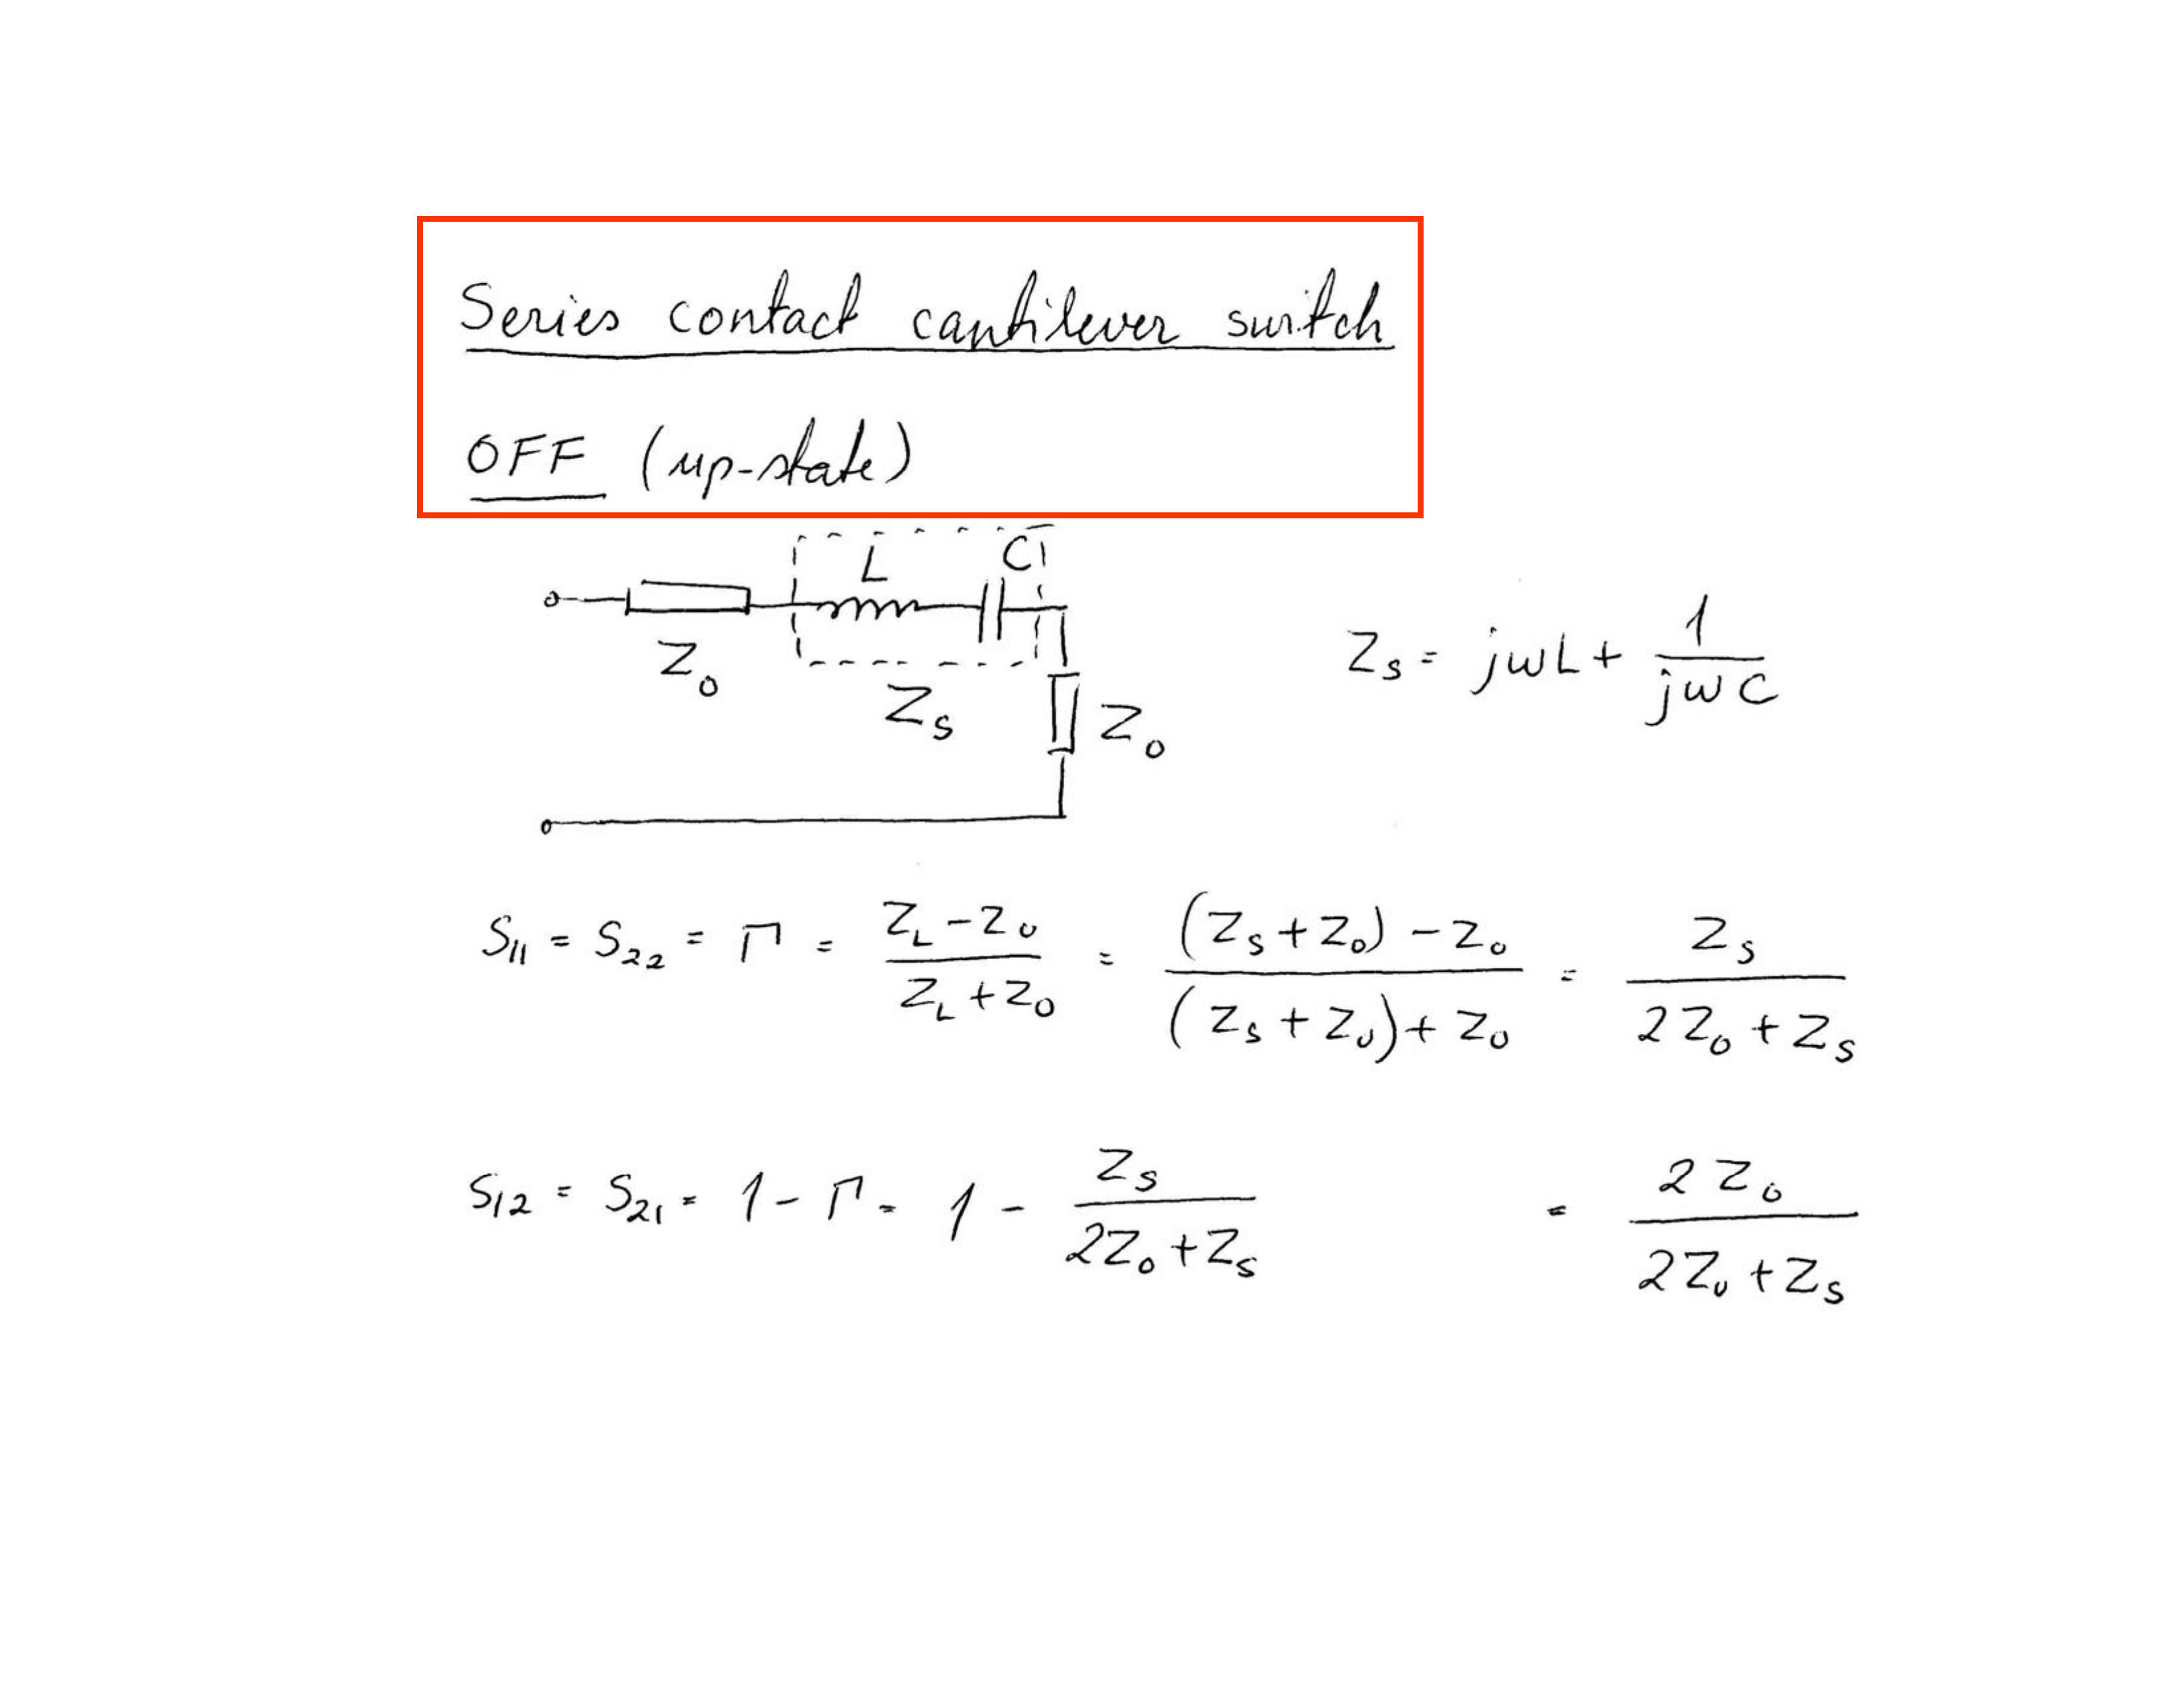 Series contact cantilever switch
OFF (up-state)
L C
Z₀
Zₛ
Z₀
Zₛ = jωL + 1/(jωC)
S₁₁ = S₂₂ = Γ = (Z_L - Z₀)/(Z_L + Z₀) = ((Zₛ + Z₀) - Z₀)/((Zₛ + Z₀) + Z₀) = Zₛ/(2Z₀ + Zₛ)
S₁₂ = S₂₁ = 1 - Γ = 1 - Zₛ/(2Z₀ + Zₛ) = 2Z₀/(2Z₀ + Zₛ)